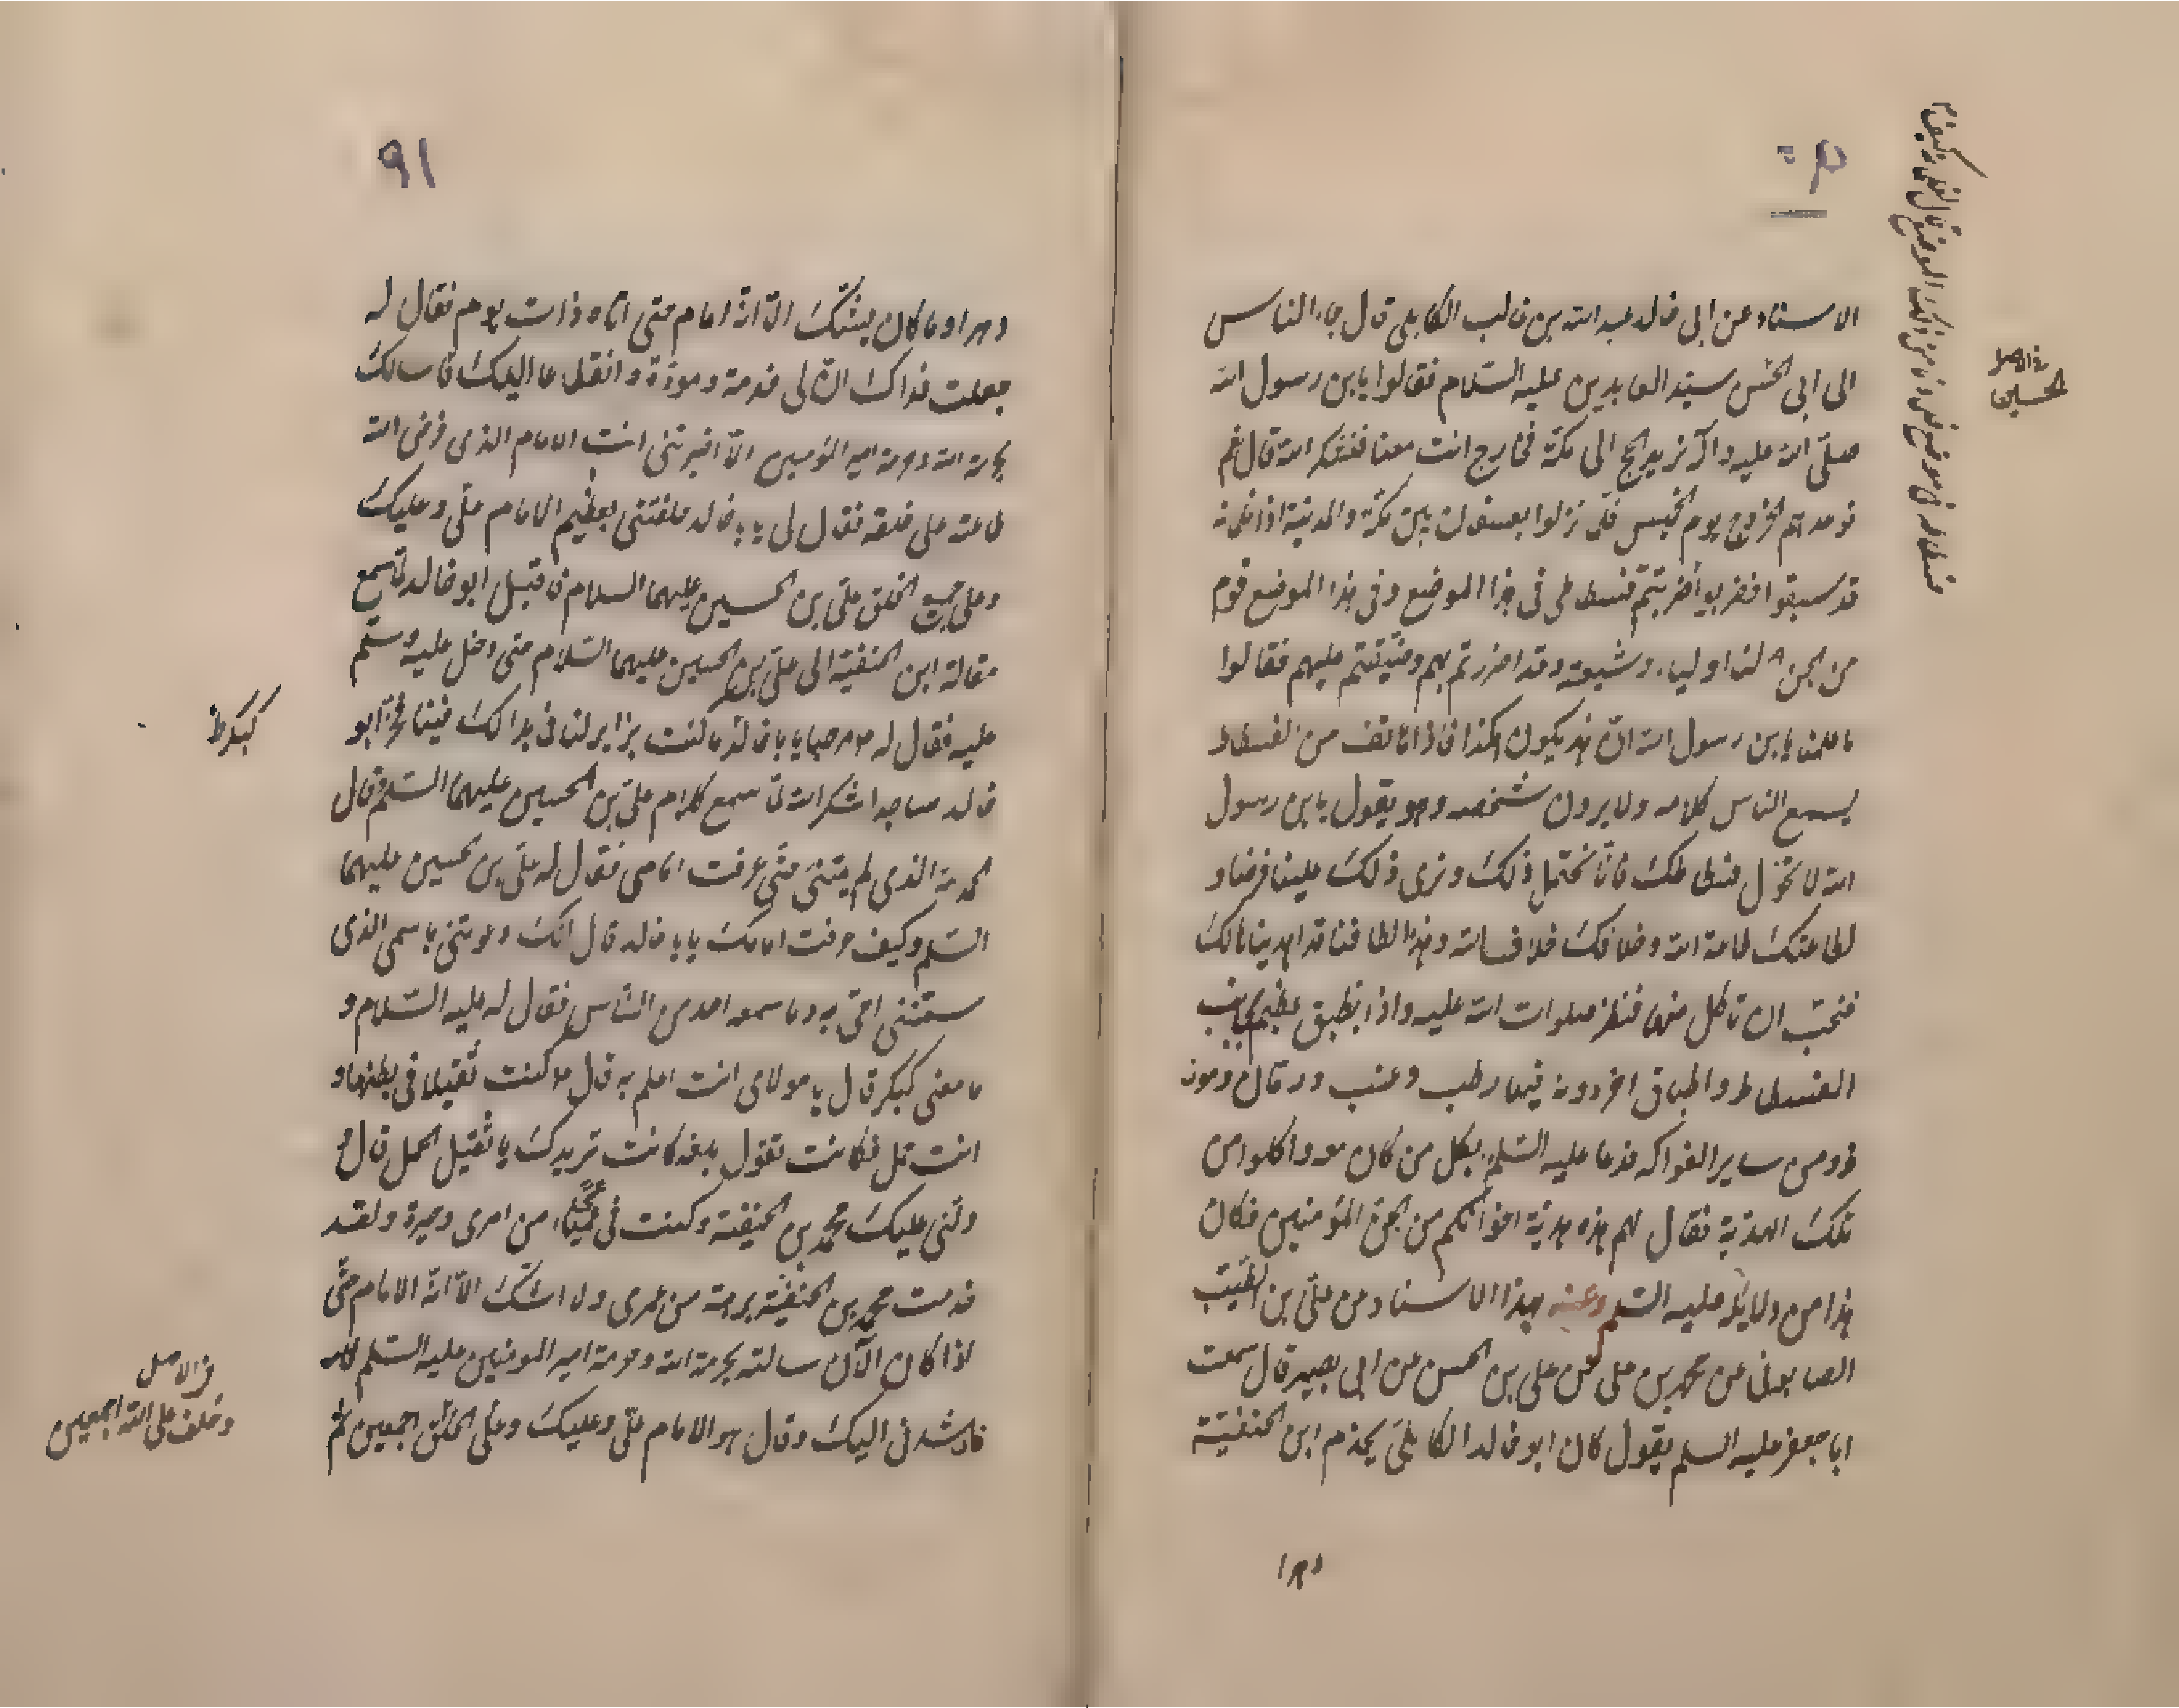 الاسناد عن ابى خالد عبد الله بن غالب الكابلى قال جاء الناس
الى ابى الحسن سيّد العابدين عليه السّلام فقالوا يابن رسول الله
صلّى الله عليه وآله نريد الحج الى مكّة فخارج انت معنا فنشكر الله قال نعم
فوعدهم الخروج يوم الخميس فلمّا نزلوا بعسفان بين مكّة والمدينة اذا غلمانه
قد سبقوا فضربوا فضربتم فسطاطى فى هذا الموضع وفى هذا الموضع قوم
من الجن لنا اولياء وشيعة وقد اضررتم بهم وضيّقتم عليهم فقالوا
ما علمنا يابن رسول الله انّ هذ يكون هكذا فاذا هاتف من الفسطاط
يسمع الناس كلامه ولا يرون شخصه وهو يقول يابن رسول
الله لا تحوّل فسطاطك فانّا نحتمل ذلك ونرى ذلك علينا فرضا و
لطاعتك طاعة الله وخلافك خلاف الله وهذا الطافنا قد اهدينا لك
فنحبّ ان تاكل منها فنظر صلوات الله عليه واذا بطبق عظيم بجانب
الفسطاط واطباق اخر دونه فيها رطب وعنب ورمّان وموز
و ومن ساير الفواكه فدعا عليه السّلم بكل من كان معه واكلوا من
تلك الهديّة فقال لهم هذه هديّة اخوانكم من الجنّ المؤمنين فكان
هذا من دلايله عليه السّلم وعنه بهذا الاسناد عن علىّ بن الطيّب
الصابونى عن محمّد بن على عن على بن الحسن عن ابى بصير قال سمعت
ابا جعفر عليه السلم يقول كان ابو خالد الكابلىّ يخدم ابن الحنفيّة
دهرا
الحسين
٩١
دهرا وما كان يشكّ الّا انّه امام حتى اتاه ذات يوم فقال له
جعلت فداك انّ لى خدمة ومودّة وانقطاعا اليك فاسالك
بحرمة الله وحرمة امير المؤمنين الّا اخبرتنى انت الامام الذى فرض الله
طاعته على خلقه فقال لى يا با خالد حلفتنى بعظيم الامام علىّ وعليك
وعلى جميع الخلق علىّ بن الحسين عليهما السلام فاقبل ابو خالد لمّا سمع
مقالة ابن الحنفيّة الى علىّ بن الحسين عليهما السّلام حتى دخل عليه وسلّم
عليه فقال له مرحبا يا با خالد ما كنت بزاير لنا فى بدا لك فينا فخرّ ابو
خالد ساجدا شكرا لله لمّا سمع كلام علىّ بن الحسين عليهما السّلم وقال
الحمد لله الذى لم يمتنى حتّى عرفت امامى فقال له علىّ بن الحسين عليهما
السّلم وكيف عرفت امامك يا با خالد قال انّك دعوتنى باسمى الذى
سمّتنى امّى به وما سمعه احد من النّاس فقال له عليه السّلام و
ما معنى كبكر قال يا مولاى انت اعلم به قال كنت ثقيلا فى بطنها و
انت حمل فكانت تقول بلغة كانت تريدك يا ثقيل الحمل قال و
دلّنى عليك محمّد بن الحنيفة وكنت فى عمياء من امرى وحيرة ولقد
خدمت محمد بن الحنفيّة برهة من عمرى ولا اشكّ الّا انّه الامام حتّى
اذا كان الآن سالته بحرمة الله وحرمة امير المومنين عليه السّلم
فارشدنى اليك وقال هو الامام علىّ وعليك وعلى الخلق اجمعين ثم
كبكر ظ
فى الاصل
وخلق الله اجمعين